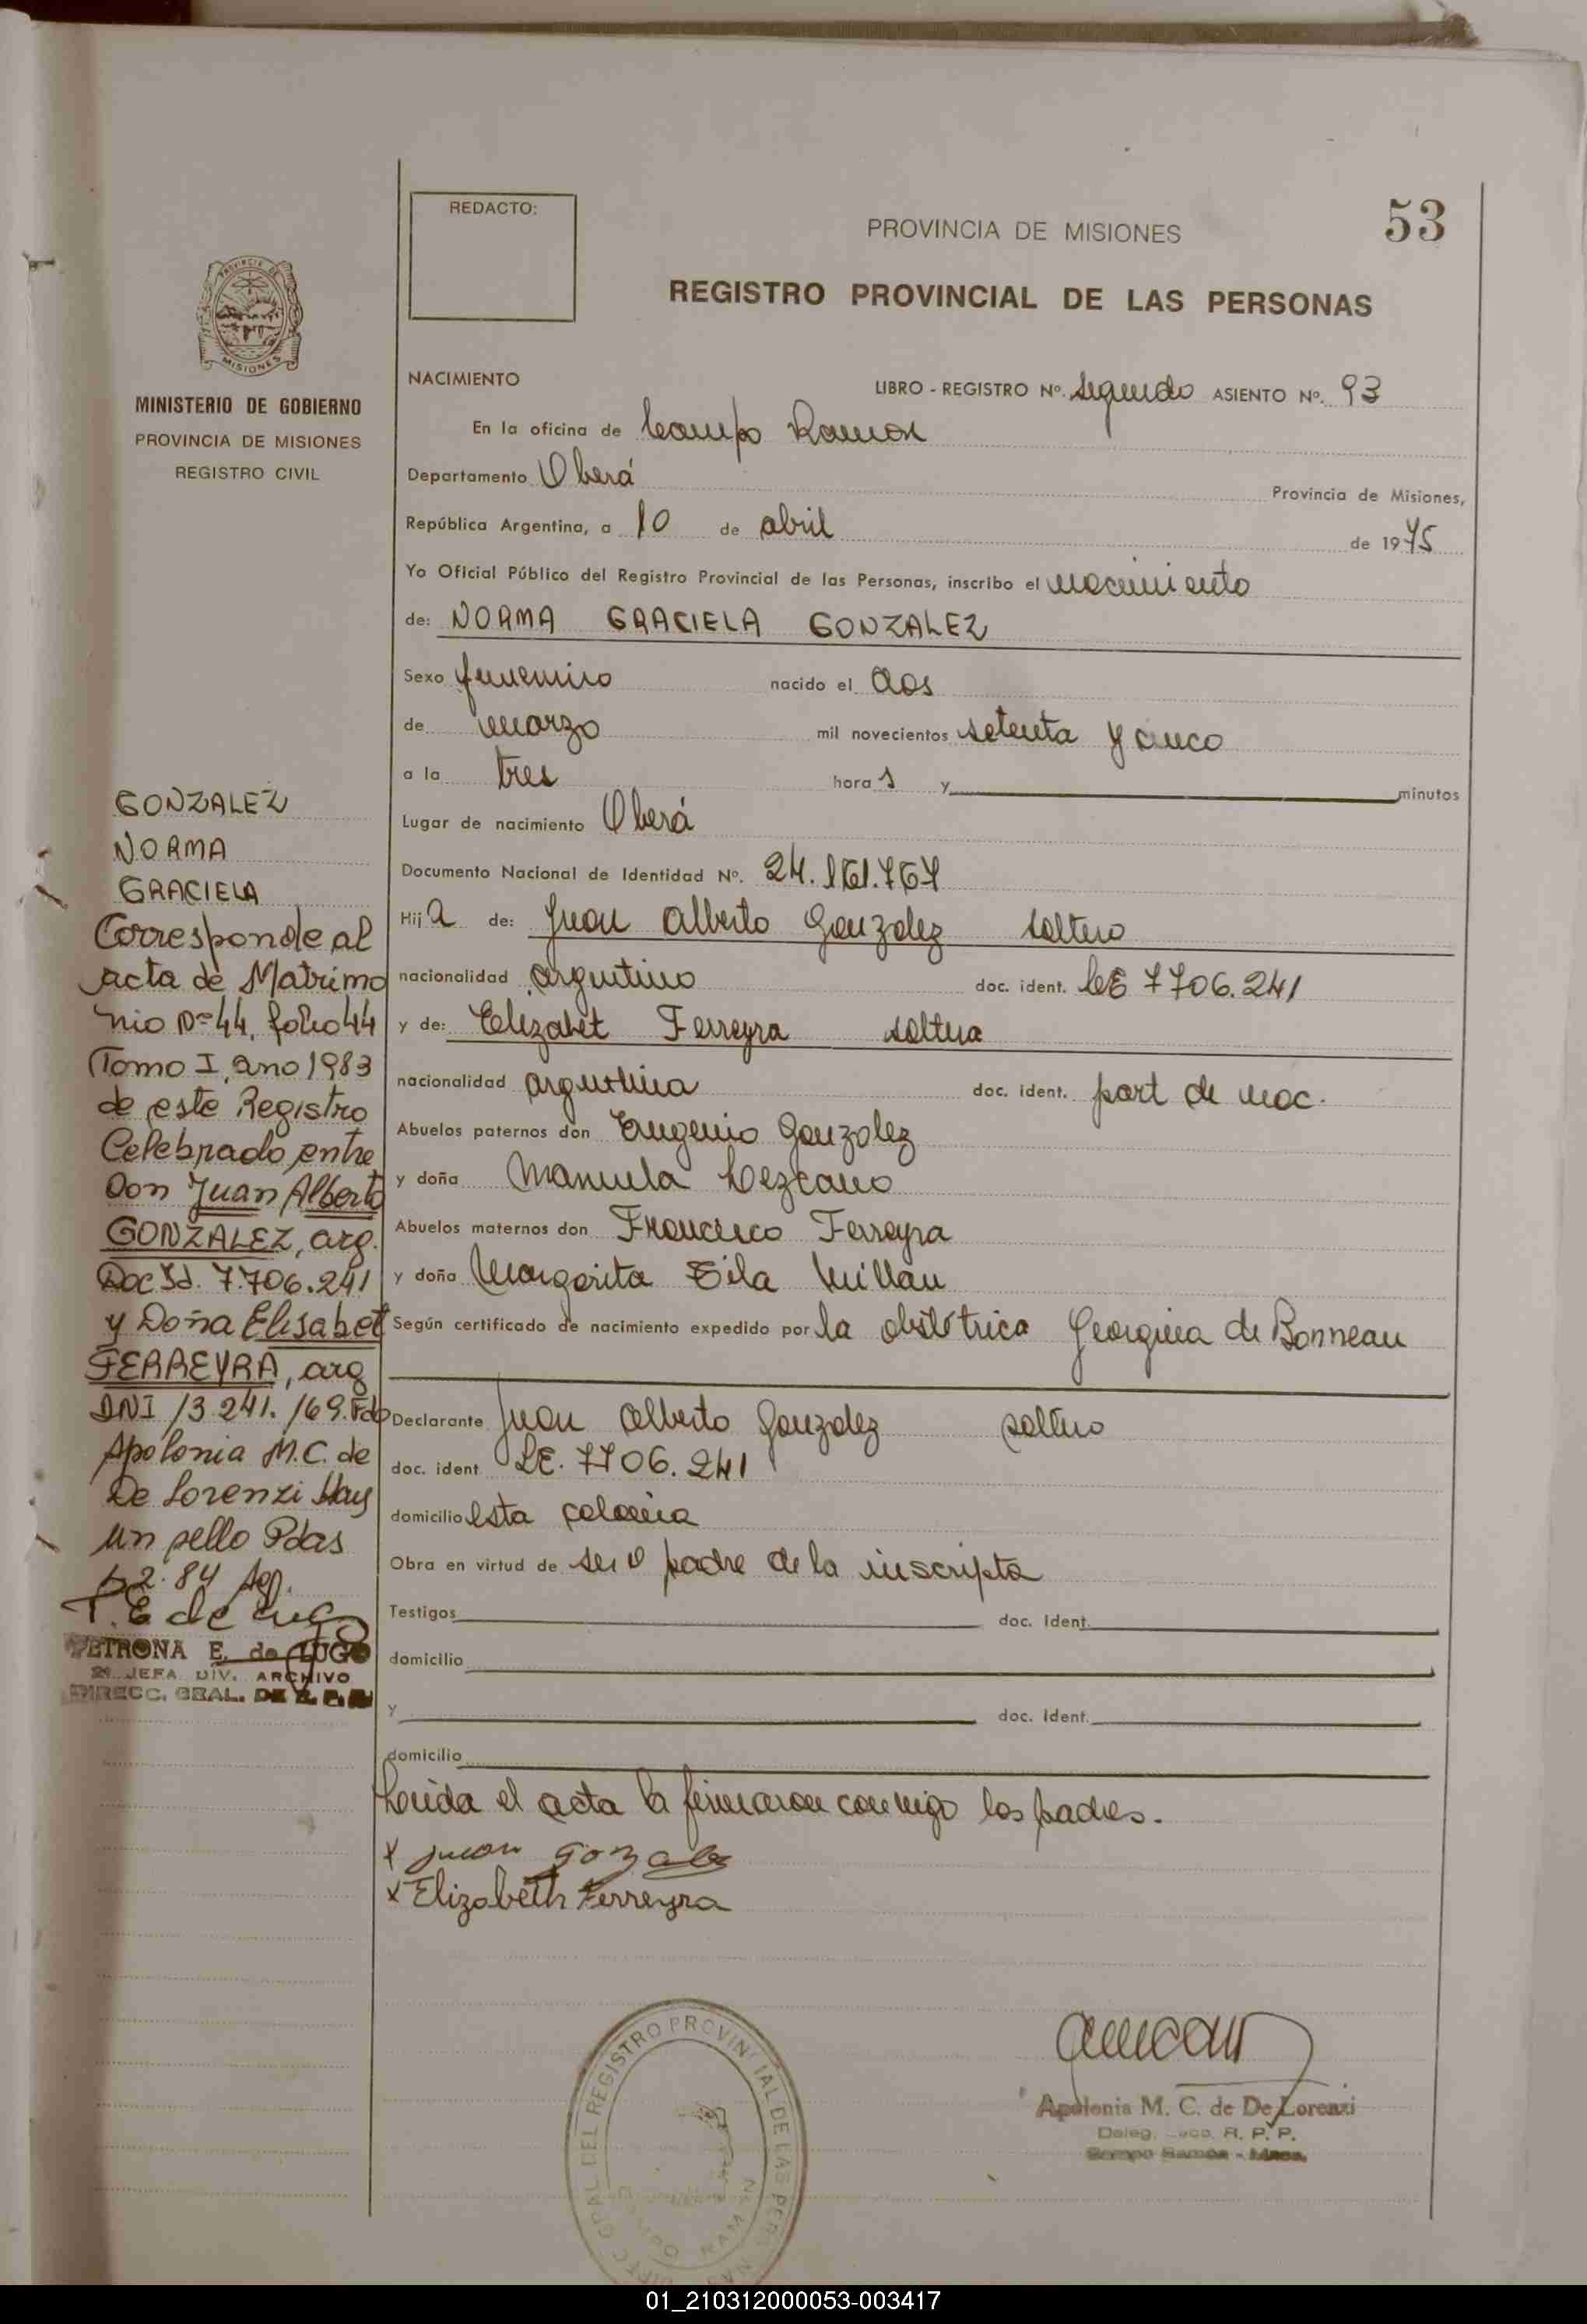 REDACTO:
PROVINCIA DE MISIONES
53
REGISTRO PROVINCIAL DE LAS PERSONAS
PROVINCIA DE
MISIONES
MINISTERIO DE GOBIERNO
PROVINCIA DE MISIONES
REGISTRO CIVIL
NACIMIENTO
LIBRO - REGISTRO Nº. segundo ASIENTO Nº. 93
En la oficina de Campo Ramon
Departamento Oberá
Provincia de Misiones,
República Argentina, a 10 de abril de 1975
Yo Oficial Público del Registro Provincial de las Personas, inscribo el nacimiento
de: NORMA GRACIELA GONZALEZ
Sexo femenino nacido el dos
de marzo mil novecientos setenta y cinco
a la tres hora s y minutos
Lugar de nacimiento Oberá
Documento Nacional de Identidad Nº. 24.161.767
Hij a de: Juan Alberto Gonzalez soltero
nacionalidad argentino doc. ident. LE 7706.241
y de: Elizabet Ferreyra soltera
nacionalidad argentina doc. ident. part de nac.
Abuelos paternos don Eugenio Gonzalez
y doña Manuela Lezcano
Abuelos maternos don Francisco Ferreyra
y doña Margarita Millan
Según certificado de nacimiento expedido por la obstetrica Georgina de Bonneau
Declarante Juan Alberto Gonzalez soltero
doc. ident LE. 7706.241
domicilio esta colonia
Obra en virtud de ser padre de la inscripta
Testigos doc. Ident.
domicilio
y doc. Ident.
domicilio
Leida el acta la firmaron conmigo los padres.
x Juan Gozalez
x Elizabeth Ferreyra
GONZALEZ
NORMA
GRACIELA
Corresponde al
acta de Matrimo
nio Nº 44, folio 44
Tomo I, ano 1983
de este Registro
Celebrado entre
Don Juan Alberto
GONZALEZ, arg.
Doc. Id. 7.706.241
y Doña Elisabet
FERREYRA, arg
DNI 13.241.169. Fdo
Apolonia M.C. de
De Lorenzi Hay
un sello Pdas
2.84
P. E de Lugo
PETRONA E. de LUGO
JEFA DIV. ARCHIVO
DIRECC. GRAL. DE
GRAL DEL REGISTRO PROVINCIAL DE LAS PERSONAS
CAMPO RAMON
Apolonia M. C. de De Lorenzi
Deleg. R. P. P.
Campo Ramón - Mnes.
01_210312000053-003417